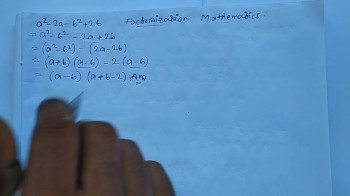 a²-2a-b²+2b Factorization Mathematics.
= a²-b²-2a+2b
= (a²-b²) - (2a-2b)
= (a+b) (a-b) - 2 (a-b)
= (a-b) (a+b-2) Ans